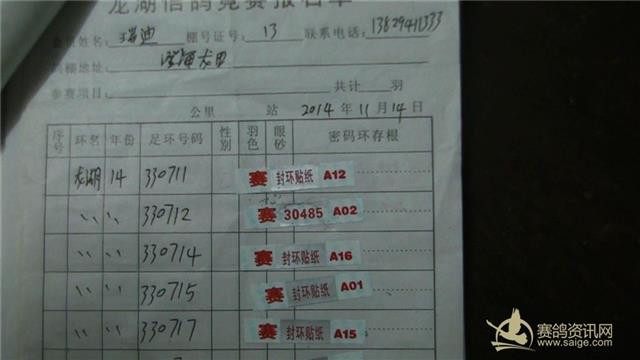 龙湖信鸽竞赛报名单
会员姓名: 瑞迪 棚号证号: 13 联系电话: 13829411333
鸽棚地址:
参赛项目: 共计 羽
公里 站 2014 年 11 月 14 日
序号 环名 年份 足环号码 性别 羽色 眼砂 密码环存根
龙湖 14 330711 赛 封环贴纸 A12
〃 〃 330712 赛 30485 A02
〃 〃 330714 赛 封环贴纸 A16
〃 〃 330715 赛 封环贴纸 A01
〃 〃 330717 赛 封环贴纸 A15
赛鸽资讯网
www.saige.com